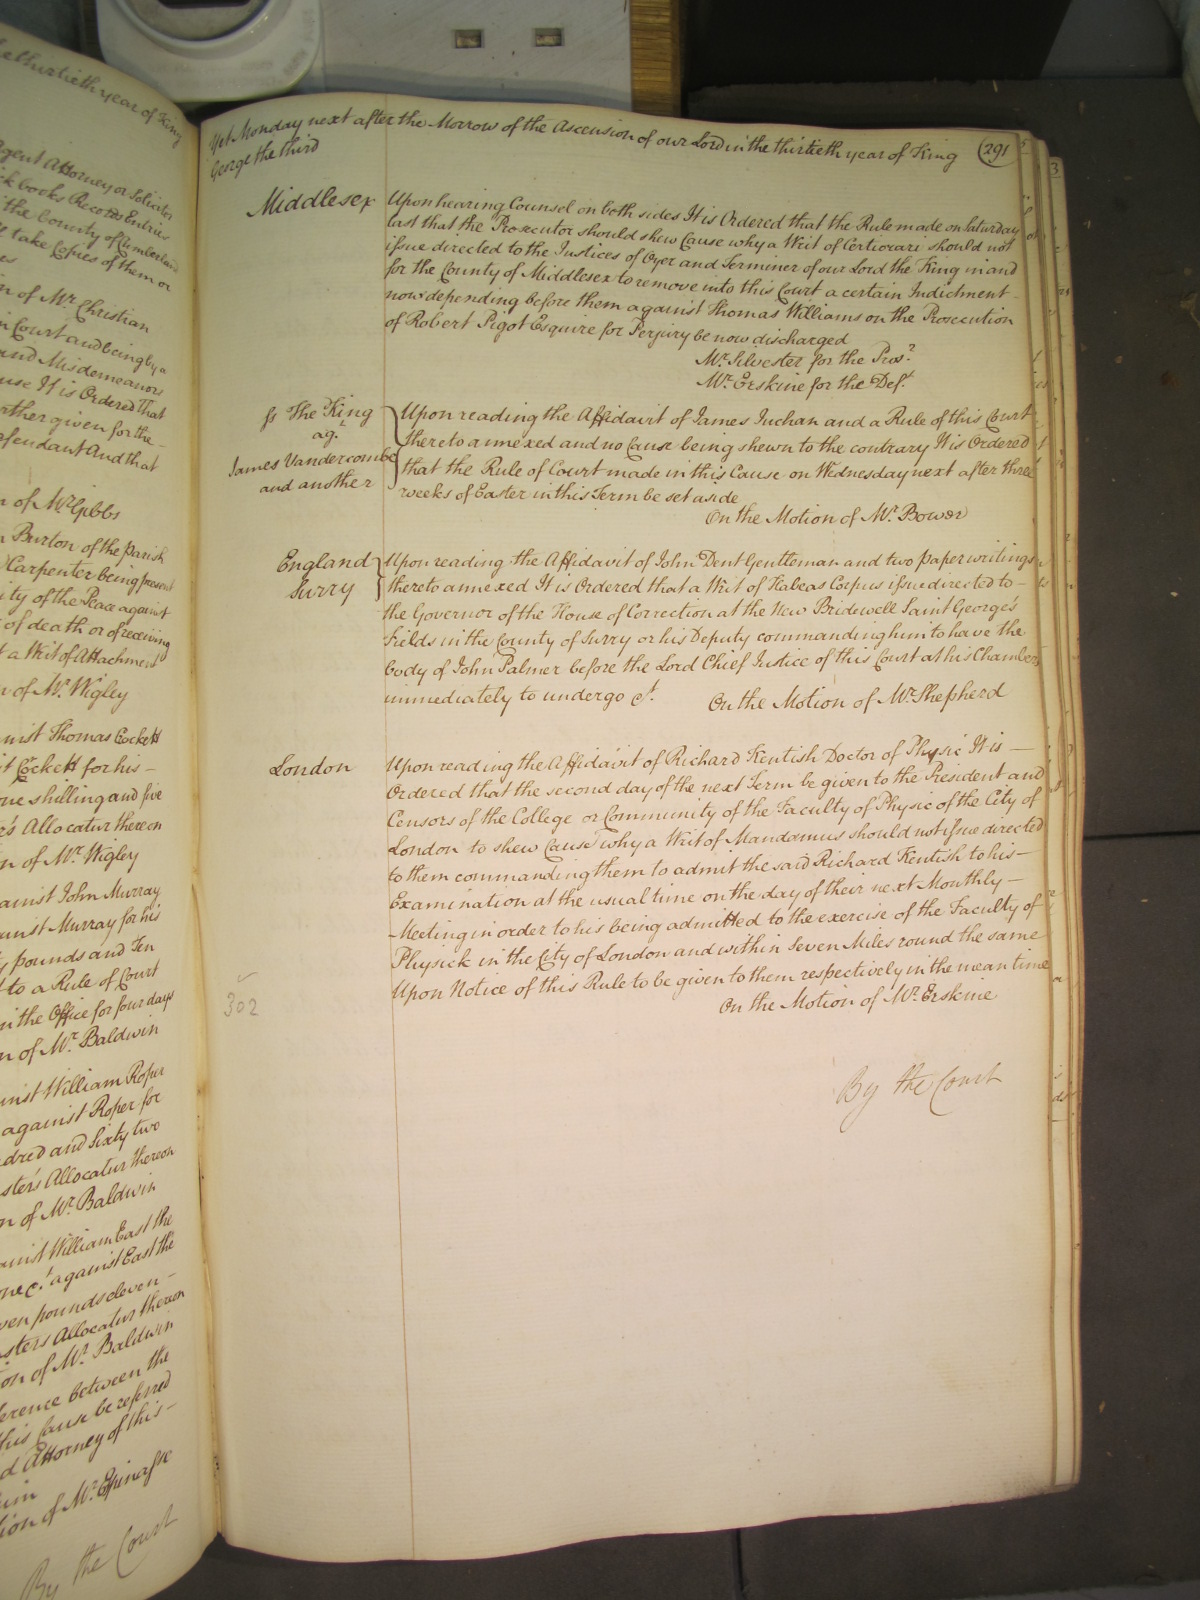 el thirtieth year of King
Agent Attorney or Solicitor
ck books Records Entries
the County of Cumberland
ll take Copies of them or
es
n of Mr. Christian
in Court and being by a
and Misdemeanors
use It is Ordered that
rther given for the
efendant And that
n of Mr. Gibbs
Burton of the Parish
Carpenter being present
ity of the Peace against
of death or of receiving
t a Writ of Attachment
n of Mr. Wigley
ainst Thomas Cockett
st Cockett for his
one shilling and five
r's Allocatur thereon
n of Mr. Wigley
ainst John Murray
ainst Murray for his
y pounds and Ten
t to a Rule of Court
in the Office for four days
n of Mr. Baldwin
ainst William Roper
against Roper for
dred and Sixty two
ster's Allocatur thereon
n of Mr. Baldwin
ainst William East the
one &ct. against East the
ven pounds eleven
sters Allocatur thereon
on of Mr. Baldwin
ference between the
this Cause be referred
d Attorney of this
him
tion of Mr. Espinasse
By the Court
Yet Monday next after the Morrow of the Ascension of our Lord in the thirtieth year of King
George the third
291
Middlesex
Upon hearing Counsel on both sides It is Ordered that the Rule made on Saturday
last that the Prosecutor should shew Cause why a Writ of Certiorari should not
issue directed to the Justices of Oyer and Terminer of our Lord the King in and
for the County of Middlesex to remove into this Court a certain Indictment
now depending before them against Thomas Williams on the Prosecution
of Robert Pigot Esquire for Perjury be now discharged
Mr. Silvester for the Pros.r
Mr. Erskine for the Def.t
fs The King
ag.t
James Vandercombe
and another
Upon reading the Affidavit of James Inchan and a Rule of this Court
thereto annexed and no Cause being shewn to the contrary It is Ordered
that the Rule of Court made in this Cause on Wednesday next after three
weeks of Easter in this Term be set aside
On the Motion of Mr. Bower
England
Surry
Upon reading the Affidavit of John Dent Gentleman and two paper writings
thereto annexed It is Ordered that a Writ of Habeas Corpus issue directed to
the Governor of the House of Correction at the New Bridewell Saint George's
Fields in the County of Surry or his Deputy commanding him to have the
body of John Palmer before the Lord Chief Justice of this Court at his Chambers
immediately to undergo &ct.
On the Motion of Mr. Shepherd
London
Upon reading the Affidavit of Richard Kentish Doctor of Physic It is
Ordered that the second day of the next Term be given to the President and
Censors of the College or Community of the Faculty of Physic of the City of
London to shew Cause why a Writ of Mandamus should not issue directed
to them commanding them to admit the said Richard Kentish to his
Examination at the usual time on the day of their next Monthly
Meeting in order to his being admitted to the exercise of the Faculty of
Physick in the City of London and within Seven Miles round the same
Upon Notice of this Rule to be given to them respectively in the mean time
On the Motion of Mr. Erskine
302
By the Court